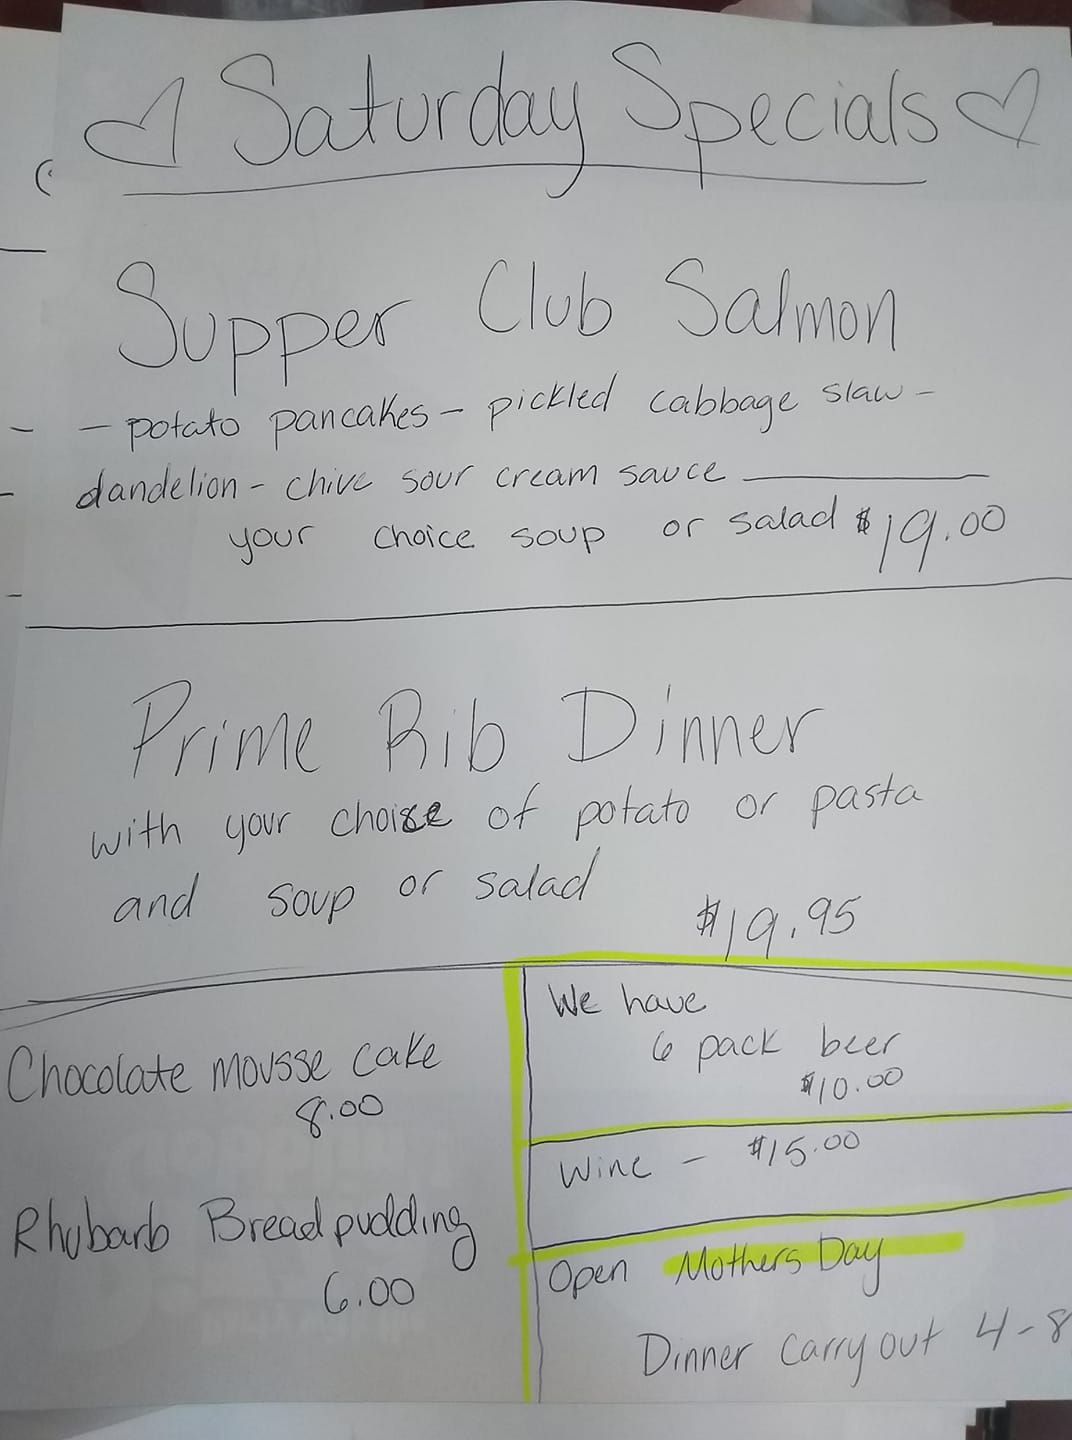 Saturday Specials
Supper Club Salmon
- potato pancakes - pickled cabbage slaw -
dandelion - chive sour cream sauce
your choice soup or salad $19.00
Prime Rib Dinner
with your choice of potato or pasta
and soup or salad
$19.95
Chocolate mousse cake
8.00
Rhubarb Bread pudding
6.00
We have
6 pack beer
$10.00
Wine - $15.00
Open Mothers Day
Dinner carry out 4-8